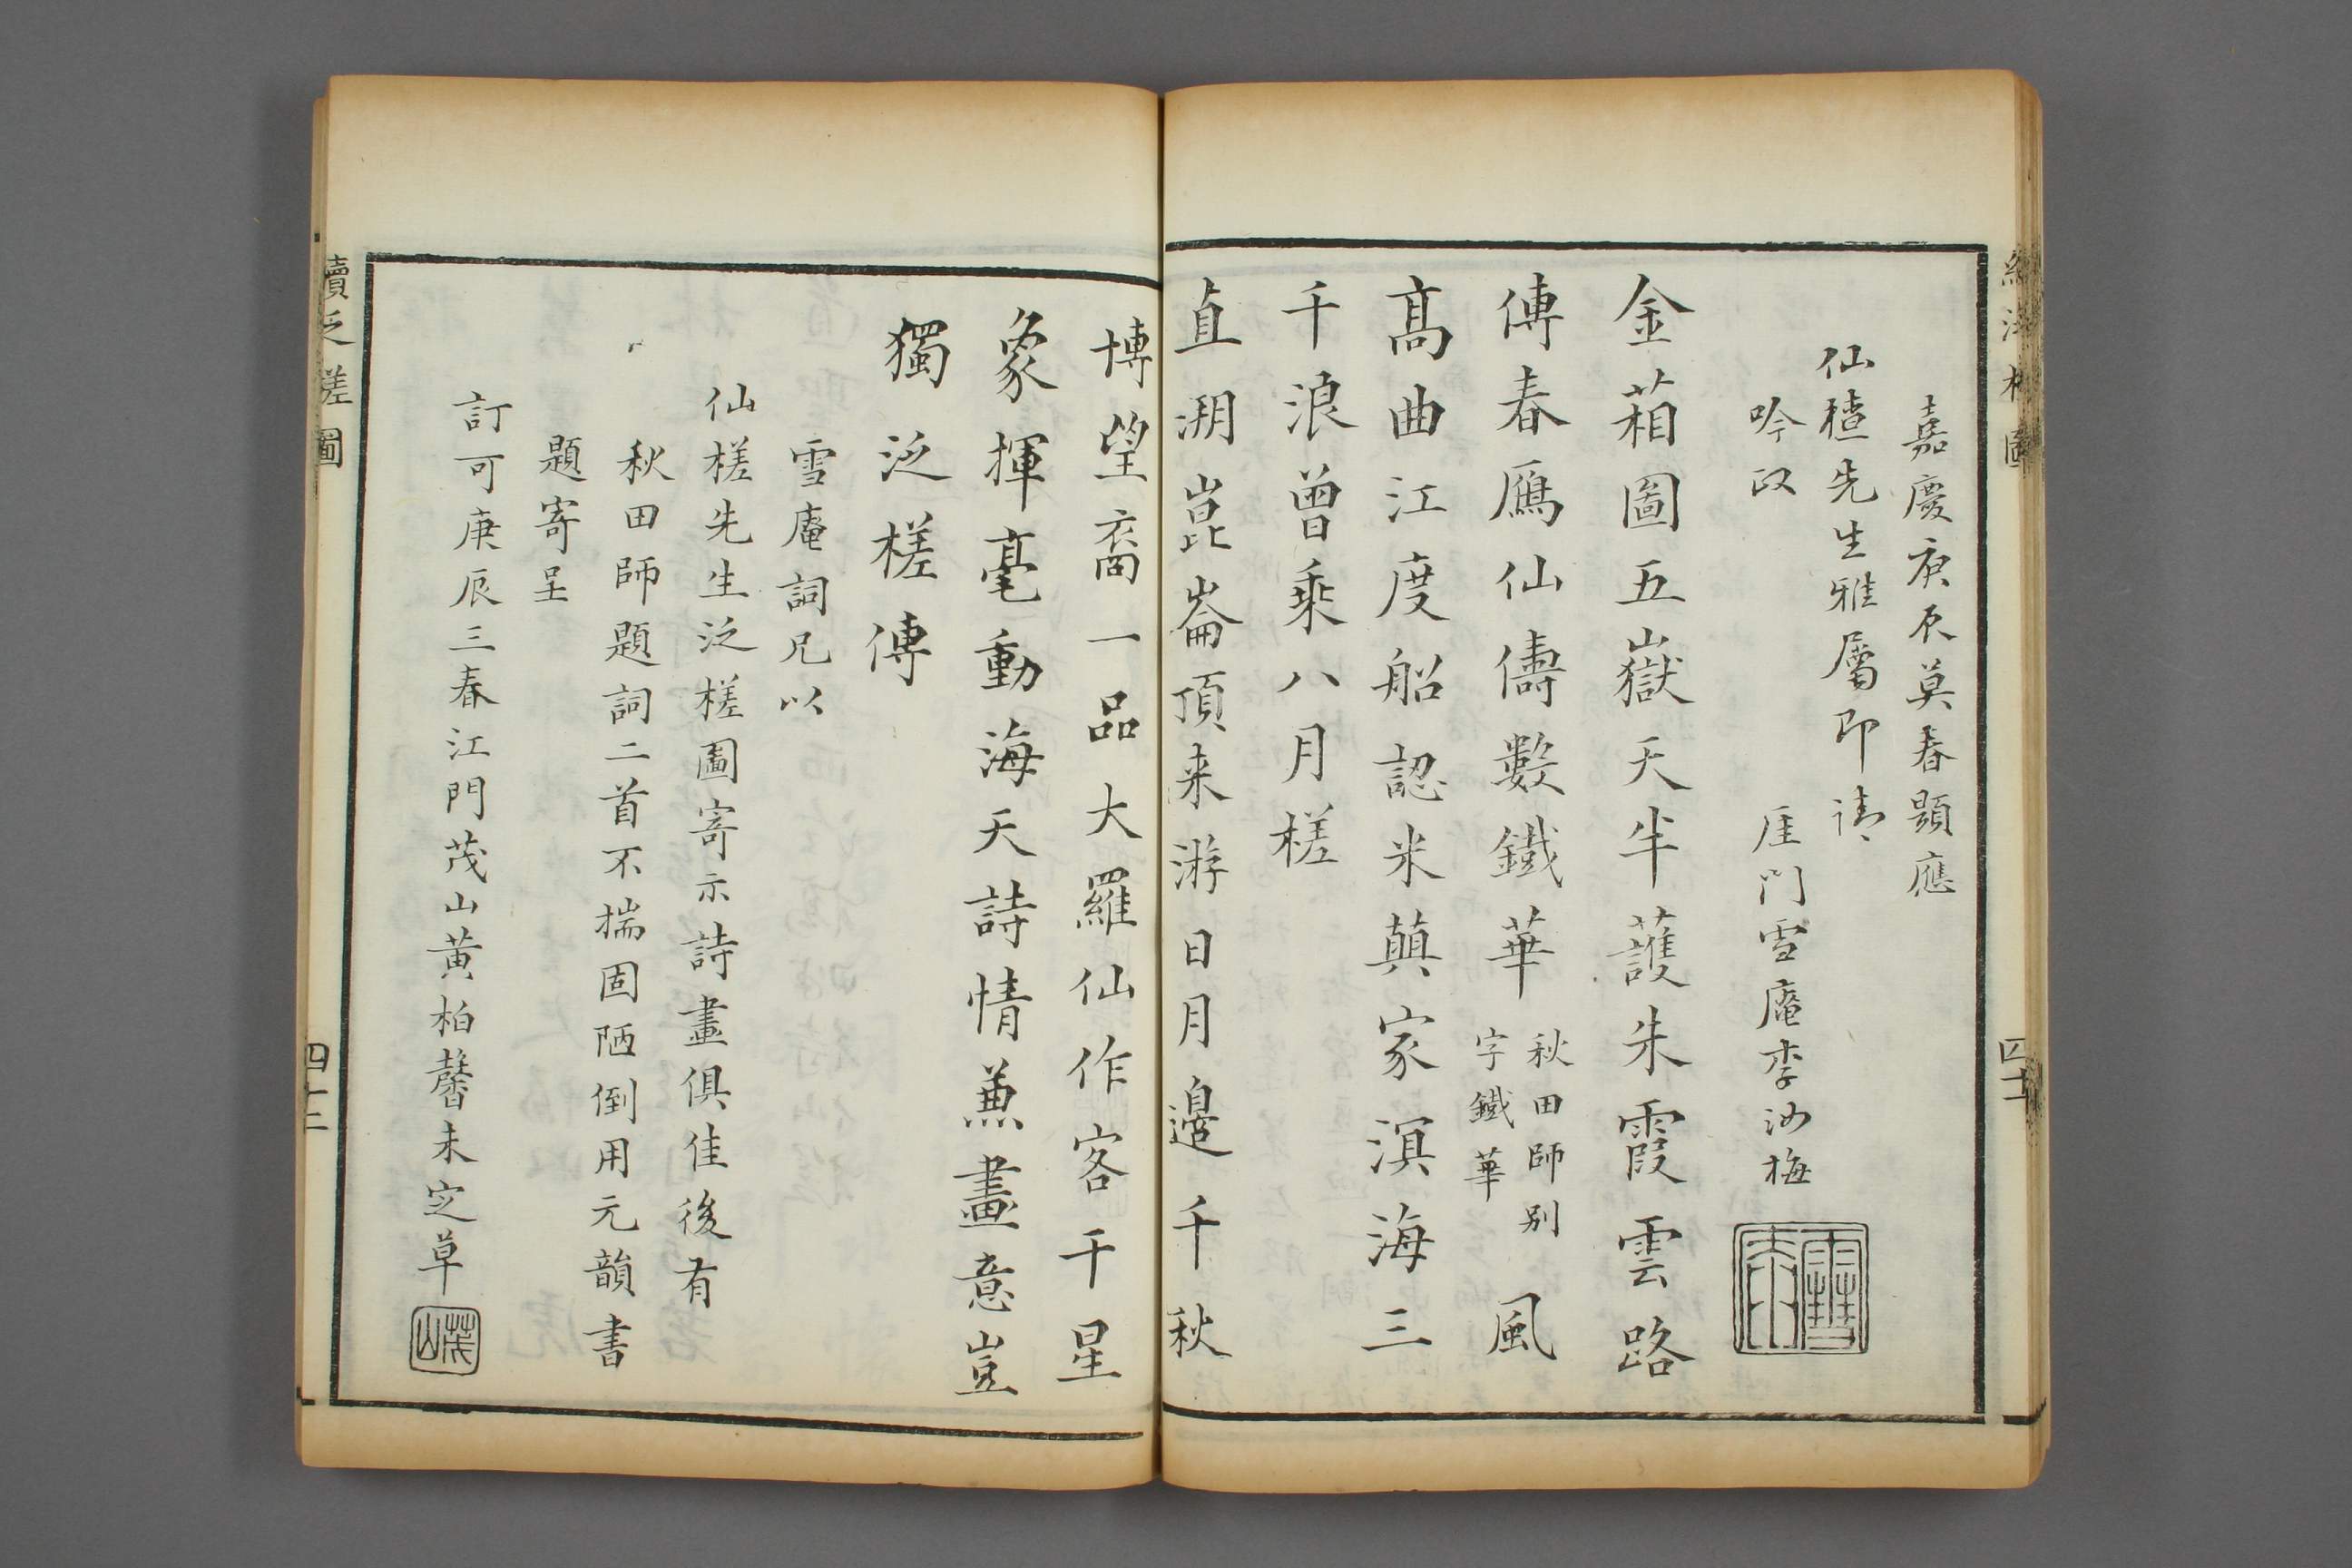 嘉慶庚辰莫春題應
仙樝先生雅屬即請
吟政
厓門雪庵李沙梅
金葙圖五嶽天半護朱霞雲路
傳春鴈仙儔數鐵華
秋田師別
字鐵華
風
髙曲江度船認米蕒家溟海三
千浪曾乘八月槎
直溯崑崙頂来游日月邊千秋
博望裔一品大羅仙作客干星
象揮毫動海天詩情兼畫意豈
獨泛槎傳
雪庵詞兄以
仙槎先生泛槎圖寄示詩畫俱佳後有
秋田師題詞二首不揣固陋倒用元韻書
題寄呈
訂可庚辰三春江門茂山黃柏馨未定草
茂山
續泛槎圖
四十二